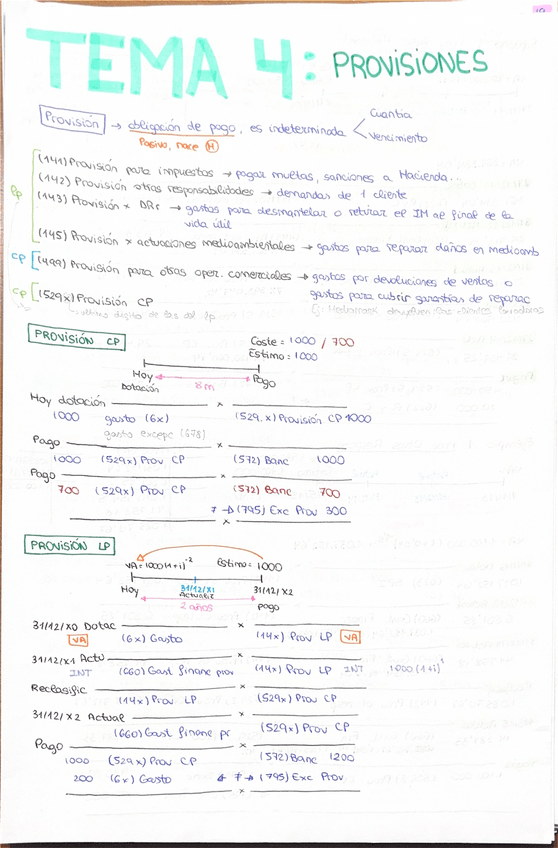 TEMA 4: PROVISIONES
Provisión → obligación de pago, es indeterminada
Cuantía
Vencimiento
Pasivo, nace H
LP
(141) Provisión para impuestos → pagar multas, sanciones a Hacienda...
(142) Provisión otras responsabilidades → demandas de 1 cliente
(143) Provisión x DRr → gastos para desmantelar o retirar el IM al final de la
vida útil
(145) Provisión x actuaciones medioambientales → gastos para reparar daños en medioamb
CP (499) Provisión para otras oper. comerciales → gastos por devoluciones de ventas o
gastos para cubrir garantías de reparac
CP (529x) Provisión CP
último dígito de las del lp
PROVISIÓN CP
Coste = 1000 / 700
Estimo = 1000
Hoy 8m Pago
Dotación
Hoy dotación x
1000 gasto (6x) (529.x) Provisión CP 1000
gasto excepc (678)
Pago x
1000 (529x) Prov CP (572) Banc 1000
Pago x
700 (529x) Prov CP (572) Banc 700
≠ → (795) Exc Prov 300
x
PROVISIÓN LP
VA = 1000(1+i)⁻² Estimo = 1000
Hoy 31/12/X1 31/12/X2
Actualiz
2 años pago
31/12/X0 Dotac x
VA (6x) Gasto (14x) Prov LP VA
31/12/X1 Actu x
INT (660) Gast financ prov (14x) Prov LP INT 1000(1+i)¹
Reclasific x
(14x) Prov LP (529x) Prov CP
31/12/X2 Actual x
(660) Gast financ pr (529x) Prov CP
Pago x
1000 (529x) Prov CP (572) Banc 1200
200 (6x) Gasto ← ≠ → (795) Exc Prov
x